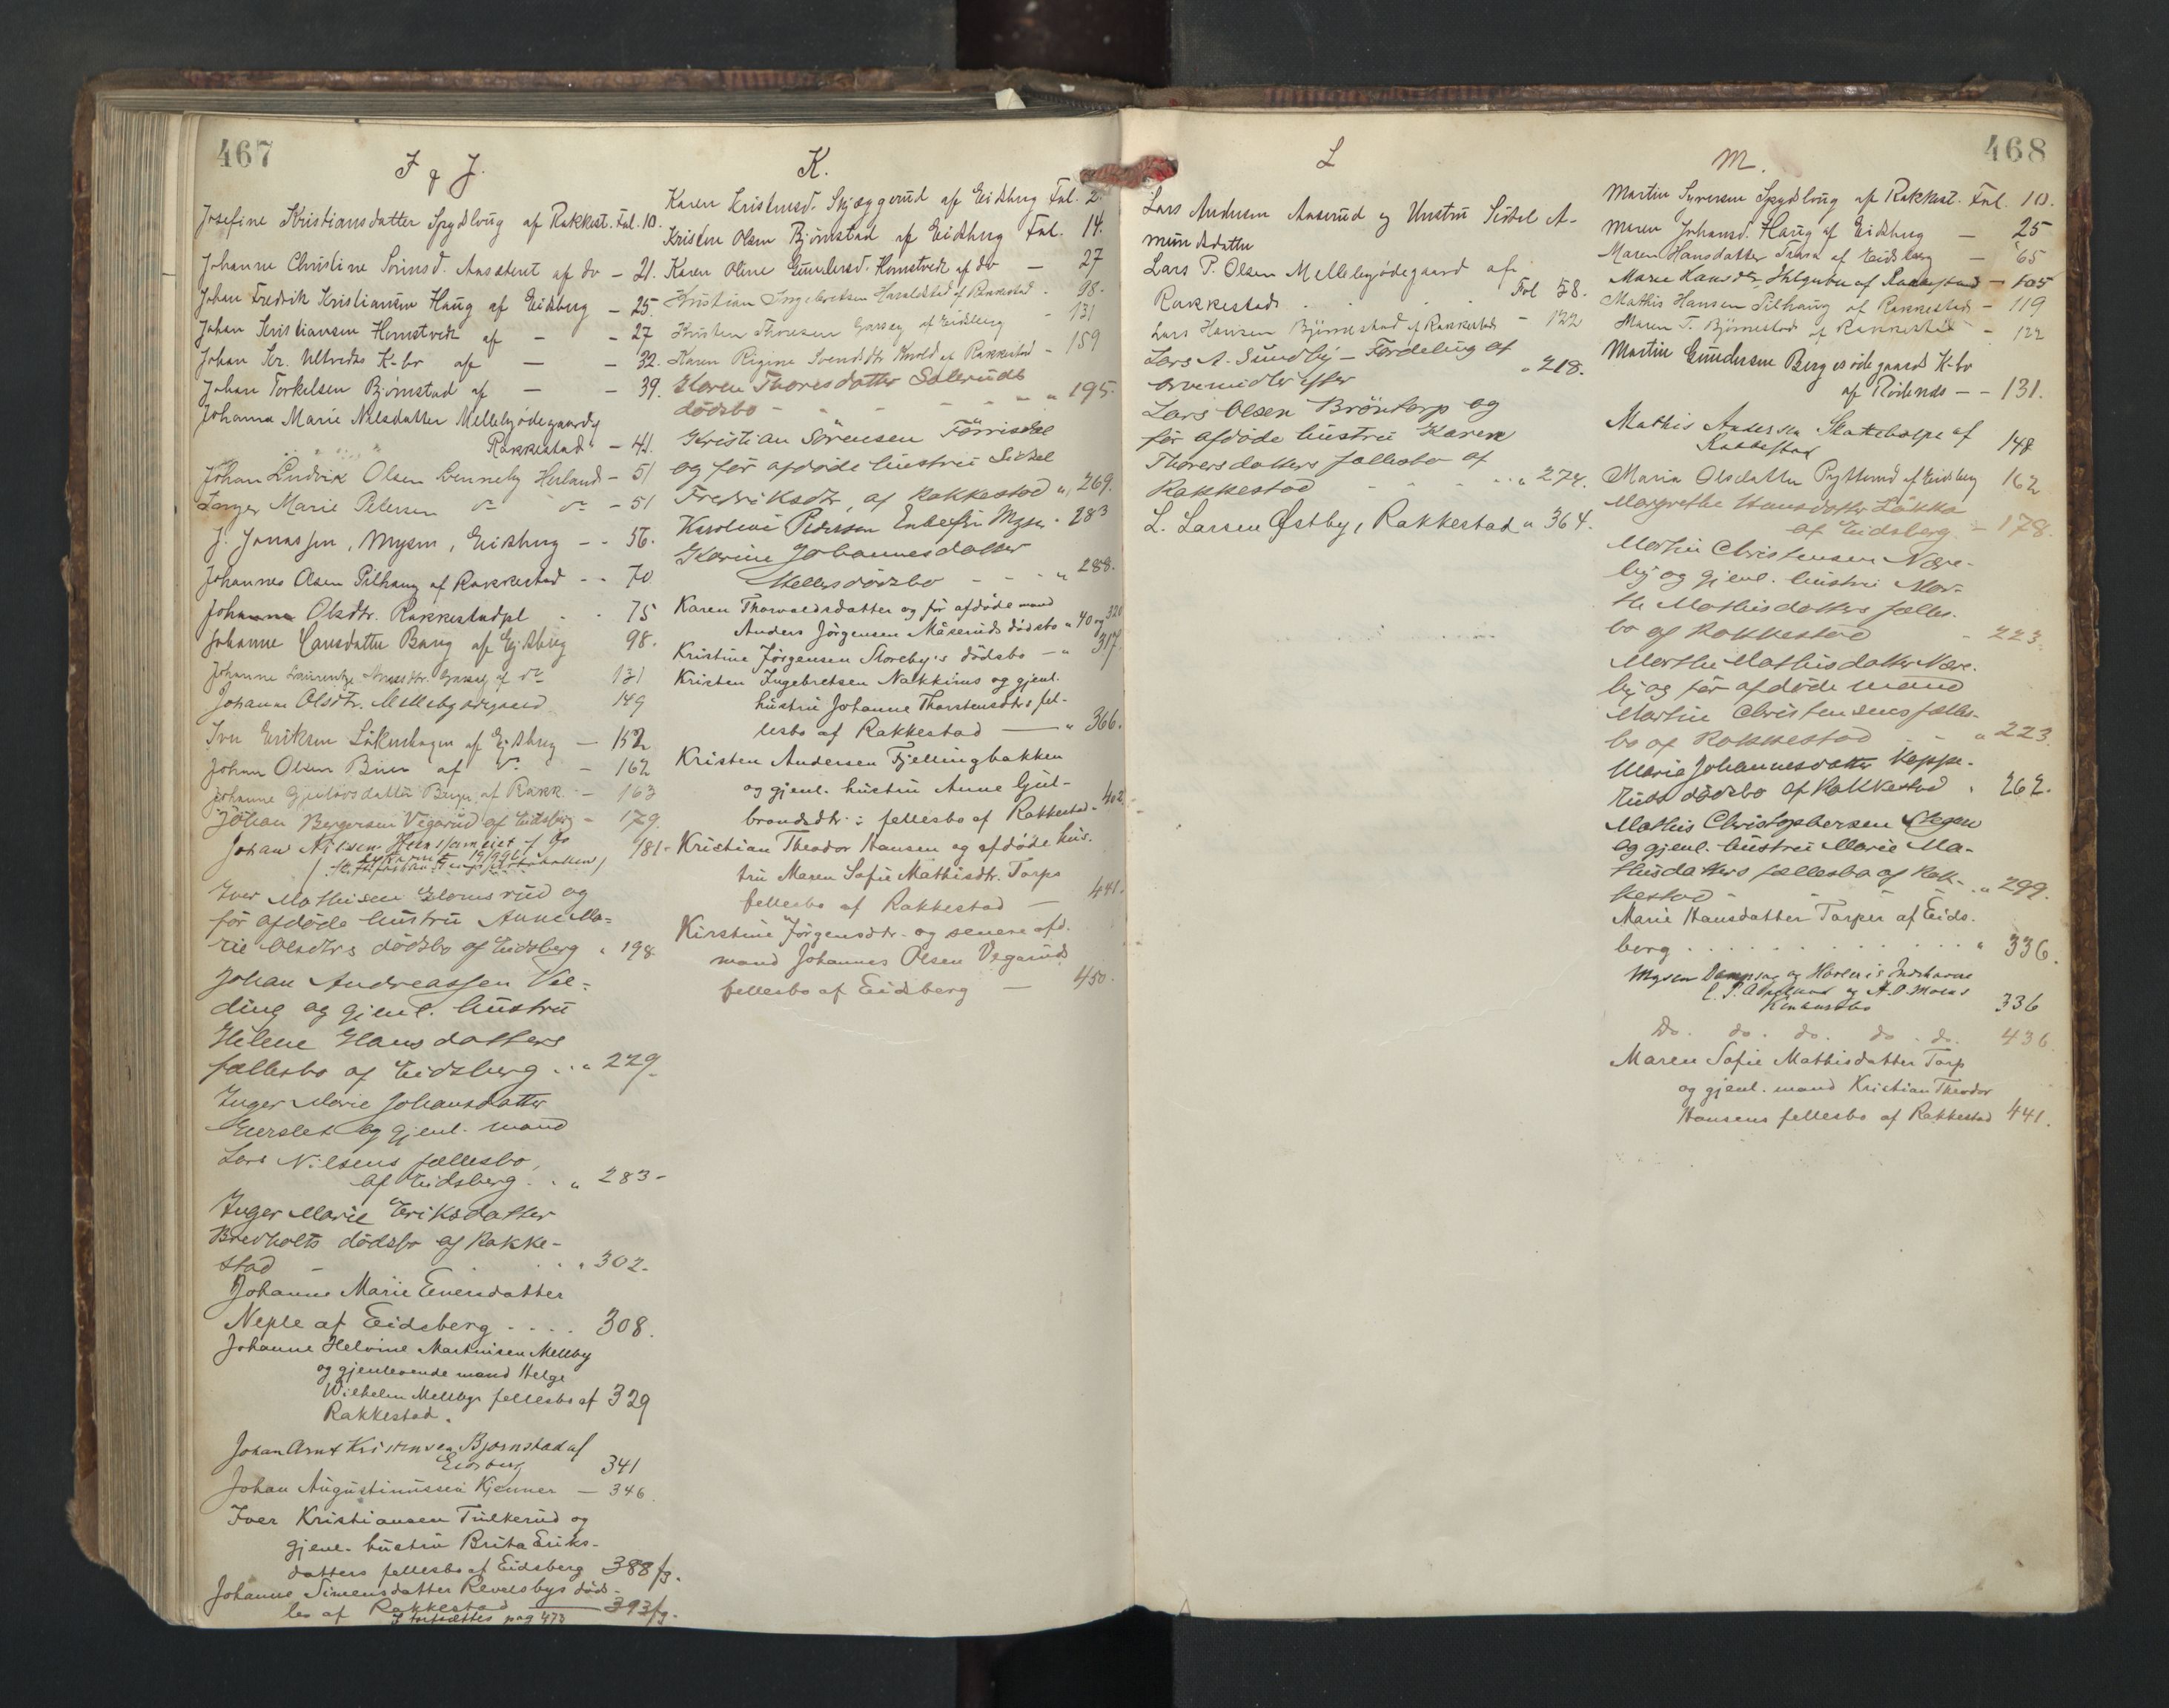 467
I & J.
Josefine Kristiansdatter Spydlaug af Rakkest. Fol. 10.
Johanne Christine Sørinsd. af do - 21.
Johan Fredrik Kristiansen Haug af Eidsberg - 25.
Johan Kristiansen Homstvedt af - - 27
Johan Kr. Ultvedts K-bo af - - 32.
Johan Torkelsen Bjørnstad af - - 39.
Johanna Marie Nilsdatter Mellebyødegaard
Rakkestad - 41.
Johan Ludvik Olsen Henneby Herland - 51
Inger Marie Petersen do do - 51
J. Jonassen, Mysen, Eidsberg - - 56.
Johannes Olsen Pilhaug af Rakkestad - - 70
Johanna Olsdtr. Rakkestadpl - - 75
Johanne Larsdatter Berg af Ejdsberg 98.
Johanne Laurentze af do 131
Johanne Olsdtr. Mellebyødegaard 149
Iver Eriksen Løkenhagen af Ejdsberg - 152
Johan Olsen Buer af do - 162
Johanne Gjulovsdatter af Rakk. - 163
Johan Bergersen Vegarud af Eidsberg - 179.
Johan Nilsen af do 181-
Iver Mathisen Glomsrud og
før afdøde hustru Anne Ma-
rie Olsdtrs dødsbo af Eidsberg " 198
Johan Andreassen Vel-
ding og gjenl. hustru
Helene Hansdatters
fællesbo af Eidsberg . . " 229.
Inger Marie Johansdatter
Eierslet og gjenl. mand
Lars Nilsens fællesbo,
af Eidsberg . . " 283-
Inger Marie Eriksdatter
Bredholts dødsbo af Rakke-
stad - . . " 302.
Johanne Marie Enersdatter
Neple af Eidsberg . . . . 308.
Johanne Helvine Martinisen Melleby
og gjenlevende mand Helge
Wilhelm Mellbys fellesbo af 329
Rakkestad.
Johan Arnt Kristensen Bjørnstad af
Eidsberg 341
Johan Augustinussen Kjenner - 346
Iver Kristiansen Tulkerud og
gjenl. hustru Brita Eriks-
datters fellesbo af Eidsberg 388 fg.
Johanne Simensdatter Revelsbys døds-
bo af Rakkestad 393 fg.
J fortsættes pag 473
K.
Karen Kristensd. Skjæggerud af Eidsberg Fol. 2.
Kristen Olsen Bjørnstad af Eidsberg Fol. 14.
Karen Oline Gundersd. Homstvedt af do - 27
Kristian Ingebretsen Haraldstad af Rakkestad - 98.
Kristen Thoresen af Eidsberg - 131
Karen Rigine Svendsdtr af Rakkestad - 159
Karen Thoresdatter Solerruds
dødsbo - - - - - - " 195.
Kristian Sørensen Førrisdal
og før afdøde hustru Sidsel
Fredriksdtr, af Rakkestad " 269.
Karoline Pedersen Mysen . 283
Karine Johannesdatter
Mellers dødsbo - - - " 288.
Karen Thorvaldsdatter og før afdøde mand
Anders Jørgensen Måseruds dødsbo " 40 og 320
Kristine Jørgensen Storeby's dødsbo - " 317.
Kristen Ingebretsen Nakkims og gjenl.
hustru Johanne Thorstensdtrs fel-
lesbo af Rakkestad - " 366.
Kristen Andersen Fjellingbakken
og gjenl. hustru Anne Gul-
brandsdtr.s fellesbo af Rakkestad - 402
Kristian Theodor Hansen og afdøde hus-
tru Maren Sofie Mathisdtr. Torps
fellesbo af Rakkestad - 441.
Kirstine Jørgensdtr. og senere afd.
mand Johannes Olsen Vegaruds
fellesbo af Eidsberg - 450.
L
Lars Andersen Aaserud og Hustru Sidsel A-
mundsdatter
Lars P. Olsen Mellebyødegaard af
Rakkestad . . . . Fol 58.
Lars Hansen Bjørnestad af Rakkestad - 122
Lars A. Sundby - Fordeling af
arvemidler efter " 218.
Lars Olsen Brøntorp og
før afdøde hustru Karen
Thoresdatters fællesbo af
Rakkestad - - - - " 274.
L. Larsen Østby, Rakkestad " 364.
468
M.
Martin Syversen Spydlaug af Rakkest. Fol. 10.
Maren Johansd. Haug af Eidsberg - 25
Maren Hansdatter af Eidsberg - 65
Maren Hansdtr. af Rakkestad - 105
Mathis Hansen Pilhaug af Rakkestad - 119
Maren T. Bjørnestad af Rakkestad - 122
Martin Gundersen Bergsødegaards K-bo
af Rødenes - - 131.
Mathis Andersen af
Rakkestad 148
Maria Olsdatter af Eidsberg 162
Margrethe Hansdatter Løkka
af Eidsberg - 178.
Martin Christensen Nære-
by og gjenl. hustru Mar-
the Mathisdatters fælles-
bo af Rakkestad - 223.
Marthe Mathisdatter Nære-
by og før afdøde mand
Martin Christensens fælles-
bo af Rakkestad - - " 223.
Marie Johannesdatter Keppe-
ruds dødsbo af Rakkestad . 262.
Mathis Christophersen Skegen
og gjenl. hustru Marie Ma-
thisdatters fællesbo af Rak-
kestad - - - . . " 299.
Marie Hansdatter Torper af Eids-
berg . . . . . . . . " 336.
Mysen Dampsag og Høvleri's Indehavere
og
Konkursbo 336
Do. do. do. do. do. 436
Maren Sofie Mathisdatter Torp
og gjenl. mand Kristian Theodor
Hansens fellesbo af Rakkestad 441.